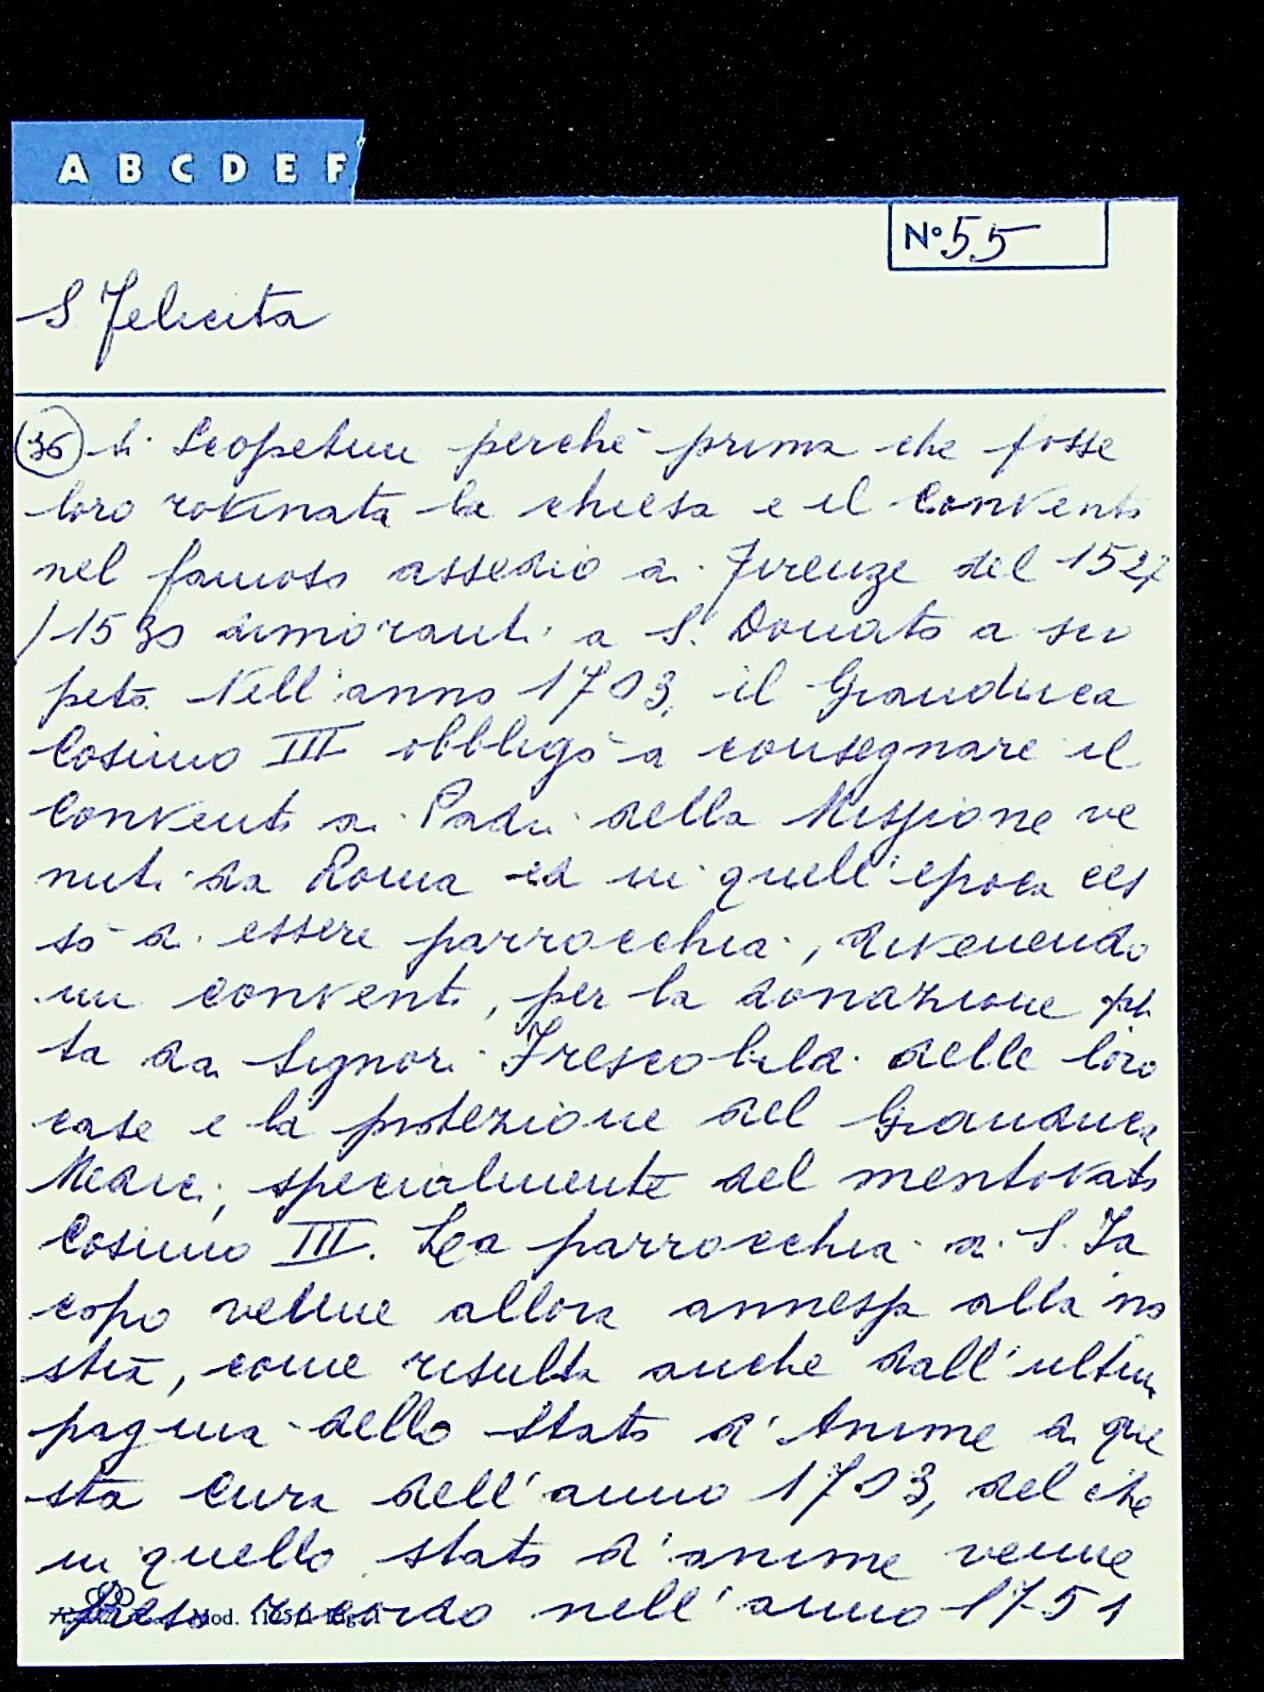 A B C D E F
N° 55
S Felicita
36 di Scopetini perchè prima che fosse
loro rovinata la chiesa e il Convento
nel famoso assedio di Firenze del 1527
/1530 dimoranti a S. Donato a sco
peto. Nell'anno 1703, il Granduca
Cosimo III obbligò a consegnare il
Convento ai Padri della Missione ve
nuti da Roma ed in quell'epoca ces
sò di essere parrocchia, divenendo
un convento, per la donazione
ta dai Signori Frescobaldi delle loro
case e la protezione del Granduca
Medici, specialmente del mentovato
Cosimo III. La parrocchia di S. Ja
copo venne allora annessa alla no
stra, come risulta anche dall'ultima
pagina dello Stato d'Anime di que
sta Cura dell'anno 1703, del che
in quello stato d'anime venne
preso ricordo nell'anno 1751
Mod.